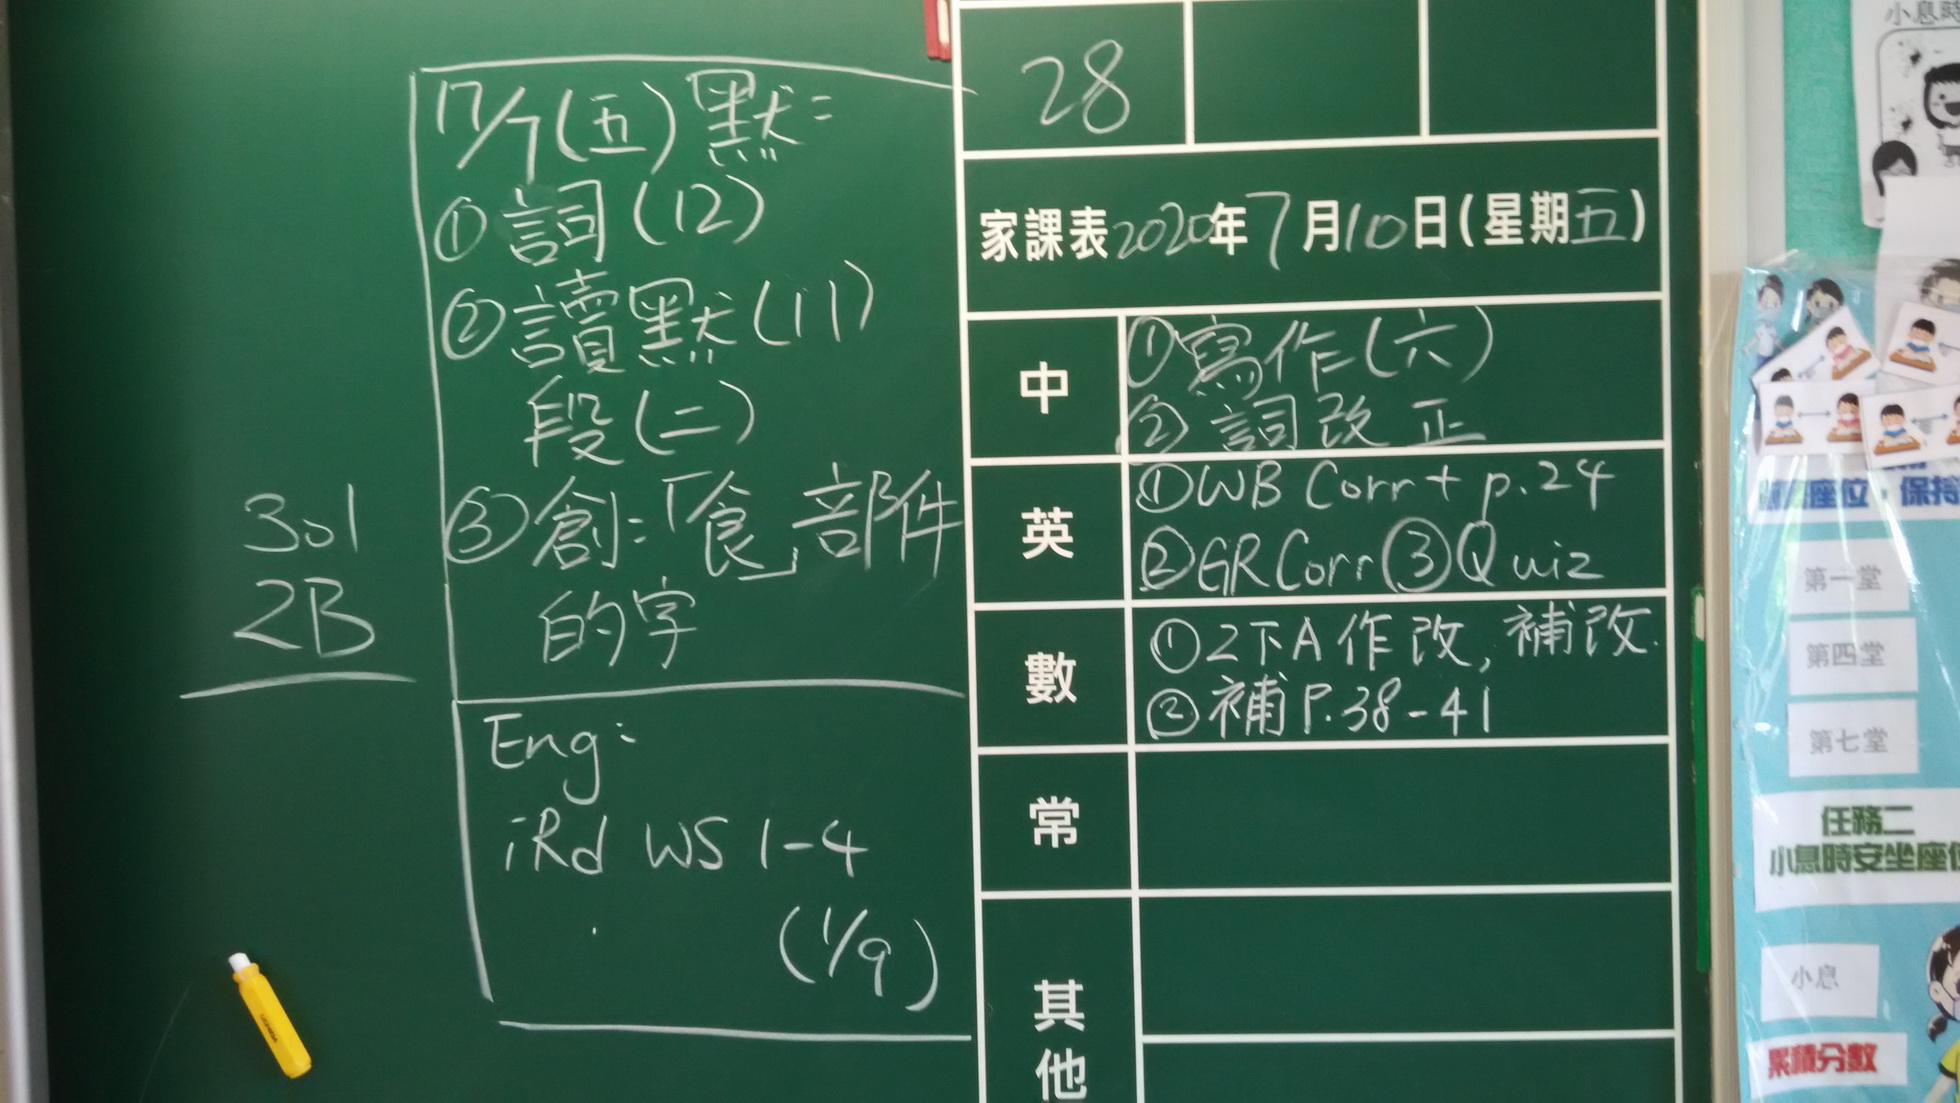 301
2B
17/7(五)默:
①詞(12)
②讀默(11)
段(二)
③創:「食」部件
的字
Eng:
iRd WS 1-4
(1/9)
28
家課表2020年7月10日(星期五)
中
①寫作(六)
②詞改正
英
①WB Corr + p.24
②GR Corr ③Quiz
數
①2下A作改, 補改.
②補P.38-41
常
其他
小息時
座位,保持
第一堂
第四堂
第七堂
任務二
小息時安坐座位
小息
累積分數